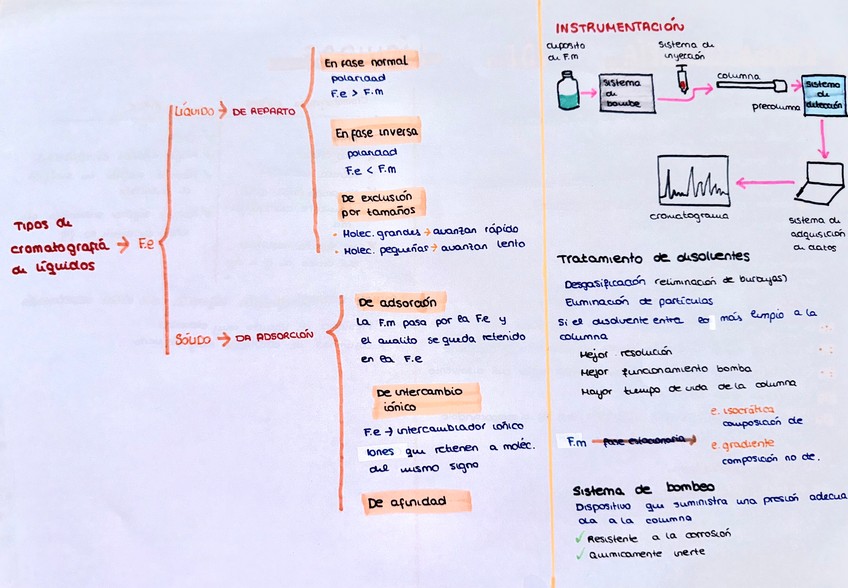 Tipos de
cromatografía → F.e
de líquidos
LÍQUIDO → DE REPARTO
En fase normal
polaridad
F.e > F.m
En fase inversa
polaridad
F.e < F.m
De exclusión
por tamaños
· Molec. grandes → avanzan rápido
· Molec. pequeñas → avanzan lento
SÓLIDO → DA ADSORCIÓN
De adsorción
La F.m pasa por la F.e y
el analito se queda retenido
en la F.e
De intercambio
iónico
F.e → intercambiador iónico
Iones que retienen a moléc.
del mismo signo
De afinidad
INSTRUMENTACIÓN
deposito
de F.m
sistema de
inyección
sistema
de
bombeo
columna
precolumna
sistema
de
detección
cromatograma
sistema de
adquisición
de datos
Tratamiento de disolventes
Desgasificación (eliminación de burbujas)
Eliminación de partículas
Si el disolvente entra lo más limpio a la
columna
Mejor resolución
Mejor funcionamiento bomba
Mayor tiempo de vida de la columna
F.m fase estacionaria
e. isocrática
composición de
e. gradiente
composición no de.
Sistema de bombeo
Dispositivo que suministra una presión adecua
da a la columna
✓ Resistente a la corrosión
✓ Químicamente inerte